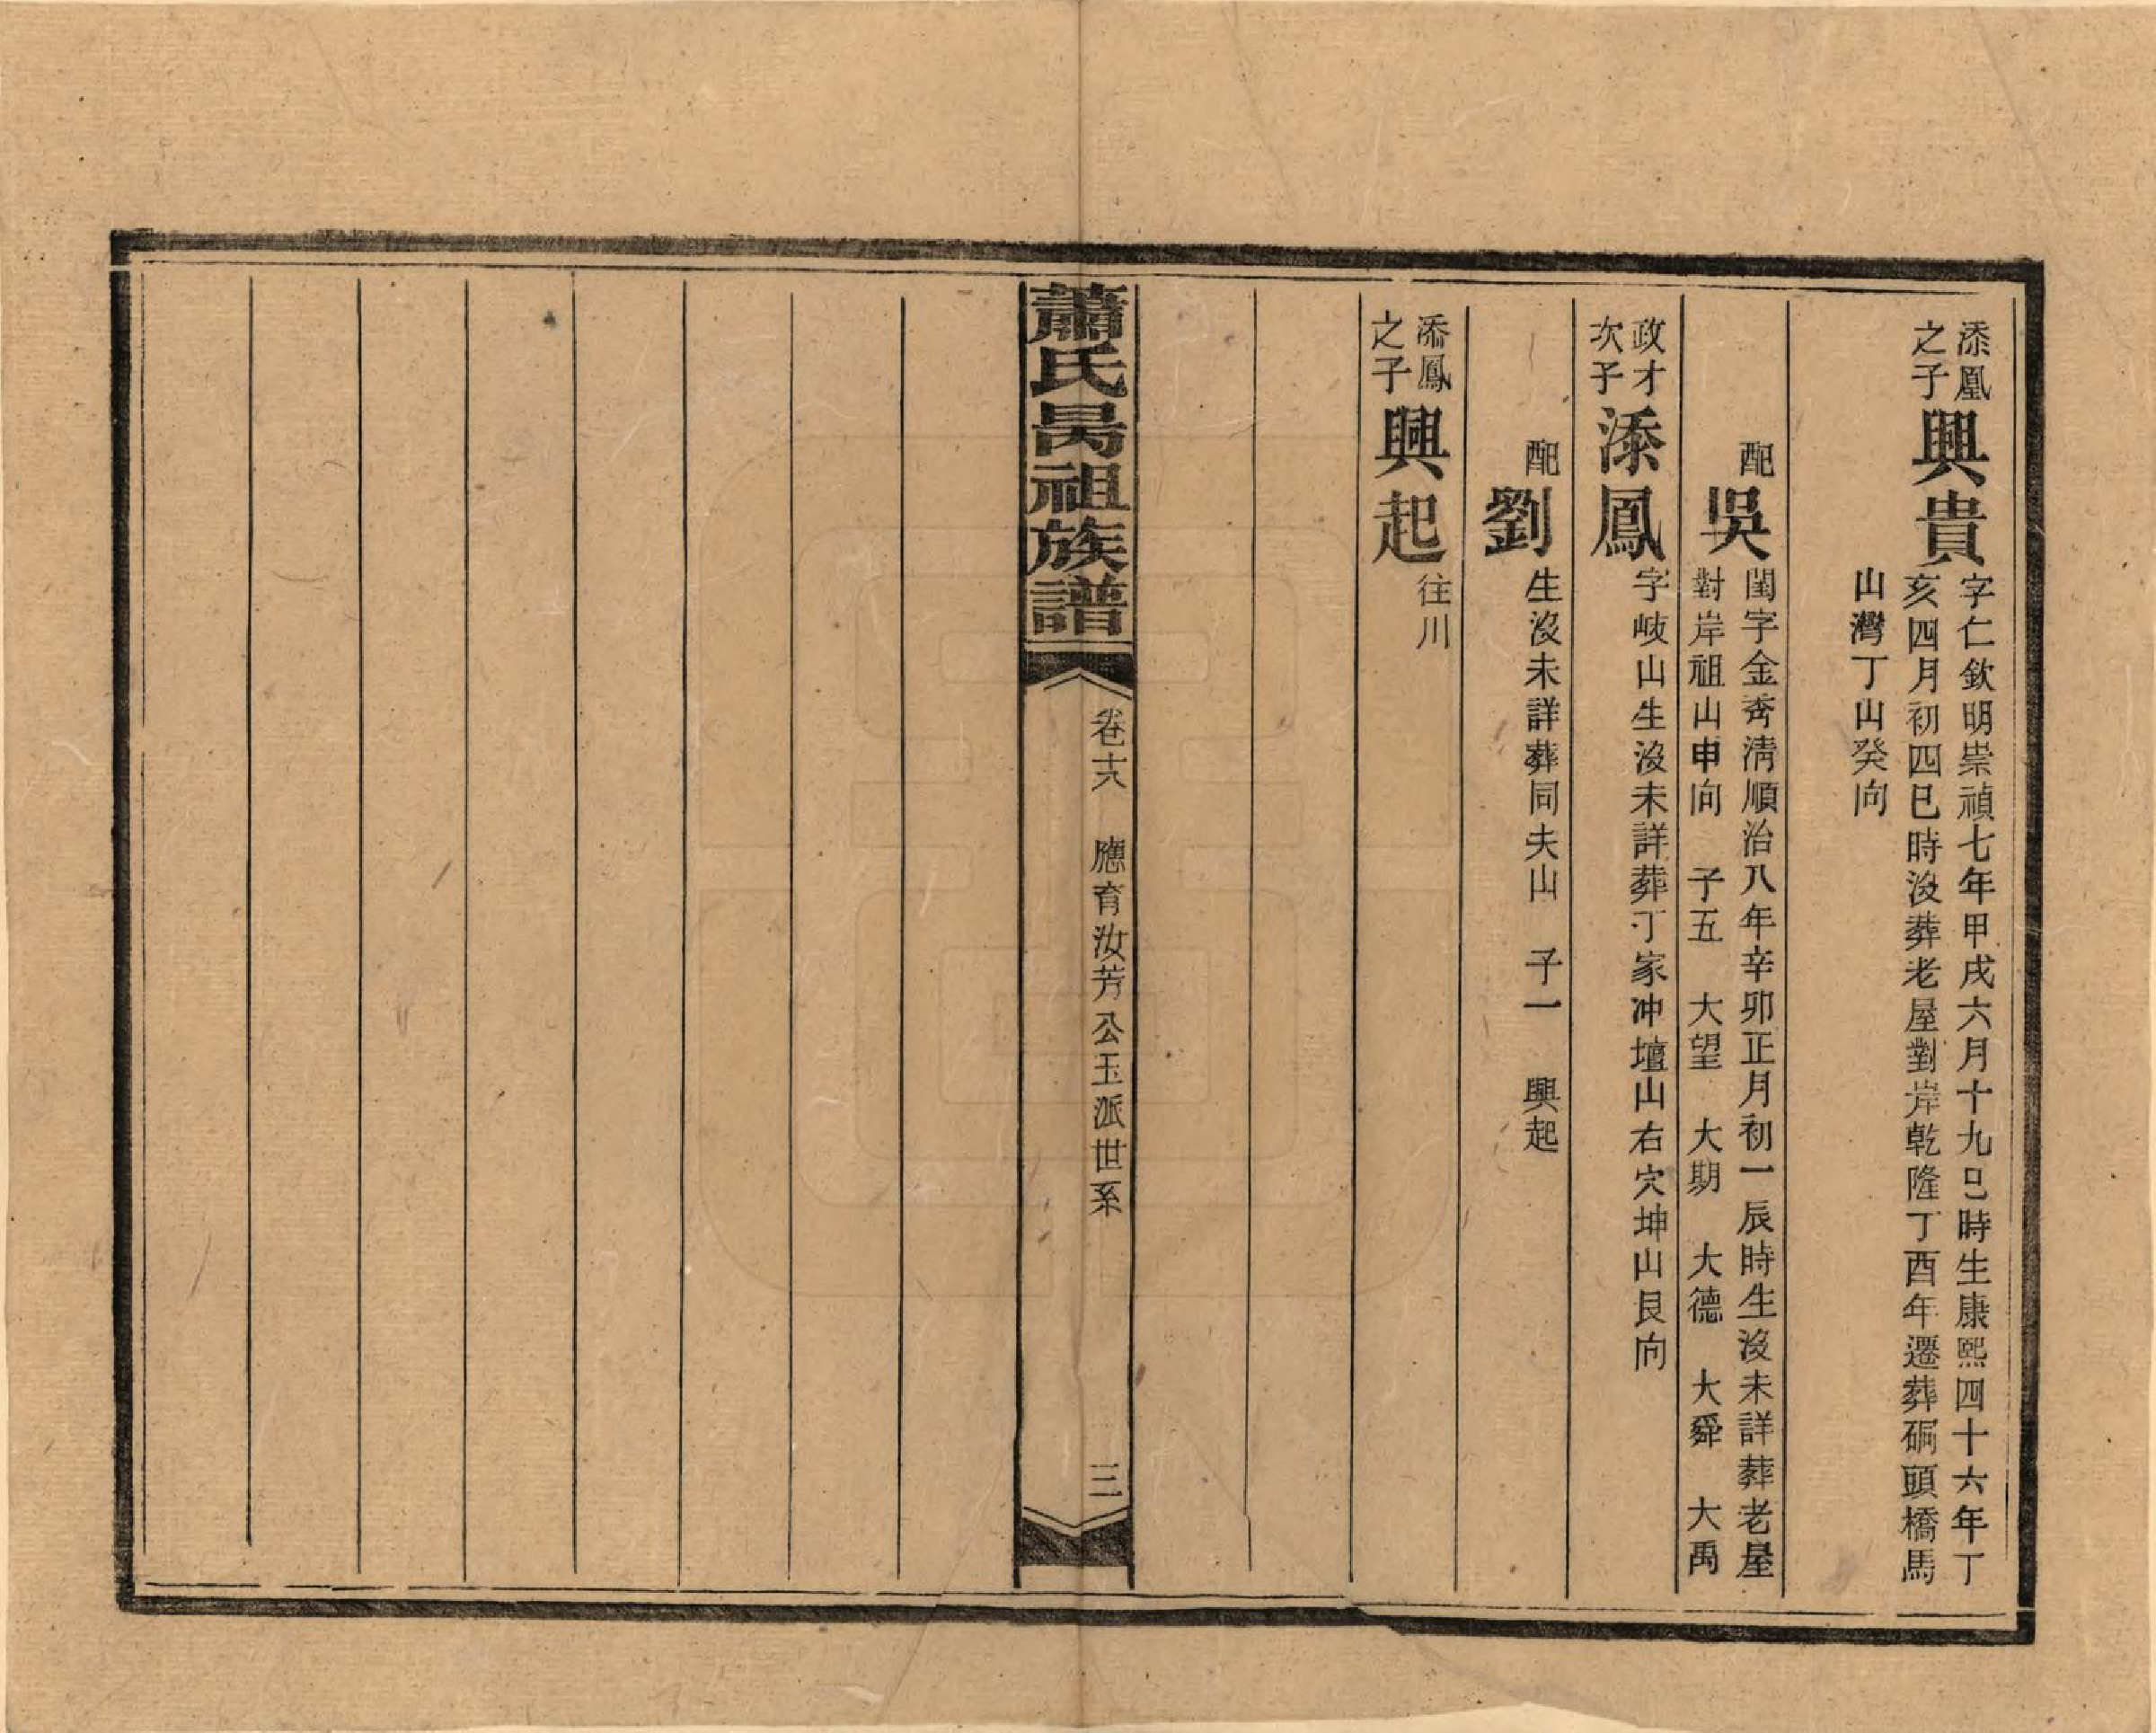 添凰
之子
興貴
字仁欽明崇禎七年甲戌六月十九巳時生康熙四十六年丁
亥四月初四巳時沒葬老屋對岸乾隆丁酉年遷葬硐頭橋馬
山灣丁山癸向
配吳
閨字金秀清順治八年辛卯正月初一辰時生沒未詳葬老屋
對岸祖山申向 子五 大望 大期 大德 大舜 大禹
政才
次子
添鳳
字岐山生沒未詳葬丁家冲壇山右穴坤山艮向
配劉
生沒未詳葬同夫山 子一 興起
添鳳
之子
興起
往川
蕭氏昺祖族譜
卷十八 應育汝芳公玉派世系
三